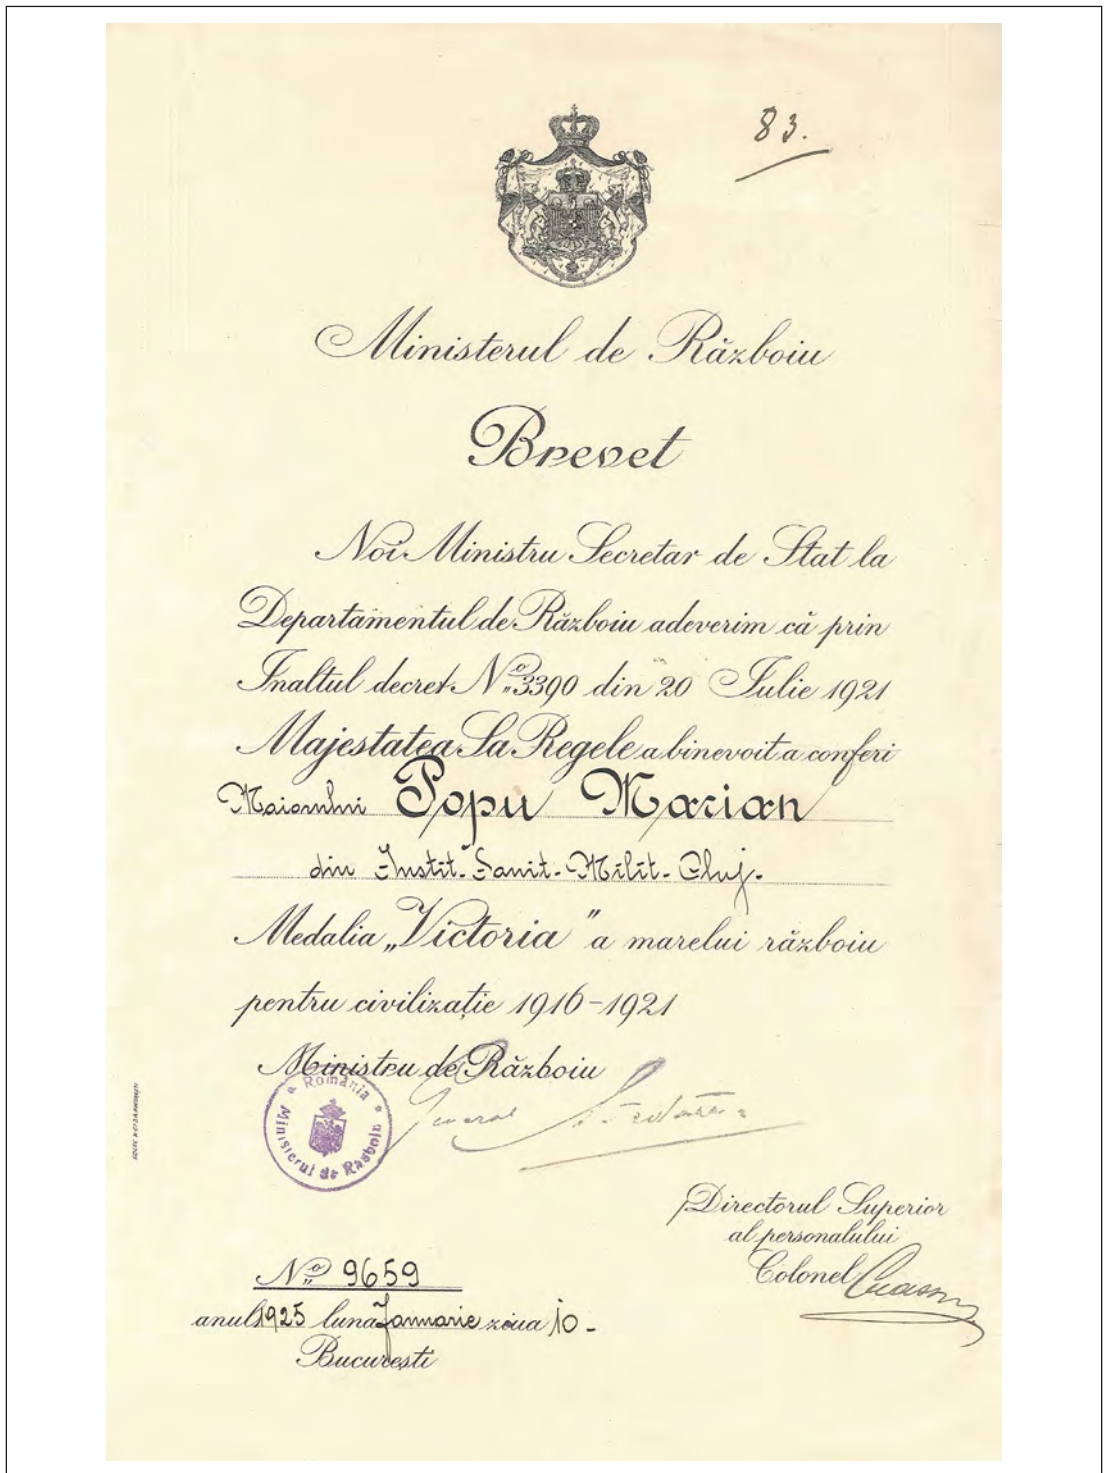 83.
Ministerul de Războiu
Brevet
Noi Ministru Secretar de Stat la
Departamentul de Războiu adeverim că prin
Inaltul decret No 3390 din 20 Iulie 1921
Majestatea Sa Regele a binevoit a conferi
Maiorului Popu Marian
din Instit. Sanit. Milit. Cluj.
Medalia „Victoria" a marelui războiu
pentru civilizație 1916-1921
Ministru de Războiu
România
Ministerul de Războiu
General
Directorul Superior
al personalului
Colonel
No 9659
anul 1925 luna Januarie ziua 10 -
București